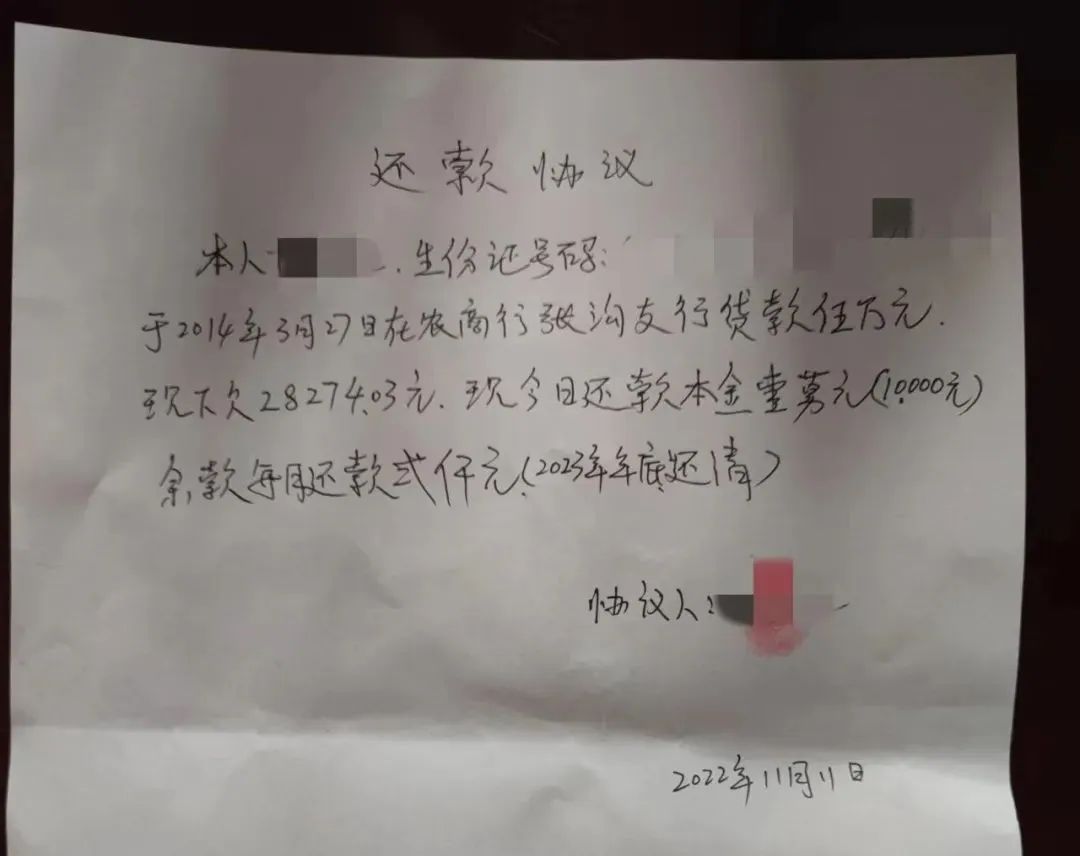 还款协议
本人 、生份证号码:
于2014年3月27日在农商行张沟支行贷款伍万元.
现下欠28274.03元.现今日还款本金壹万元(10000元)
余款每月还款弍仟元.(2023年年底还清)
协议人:
2022年11月11日